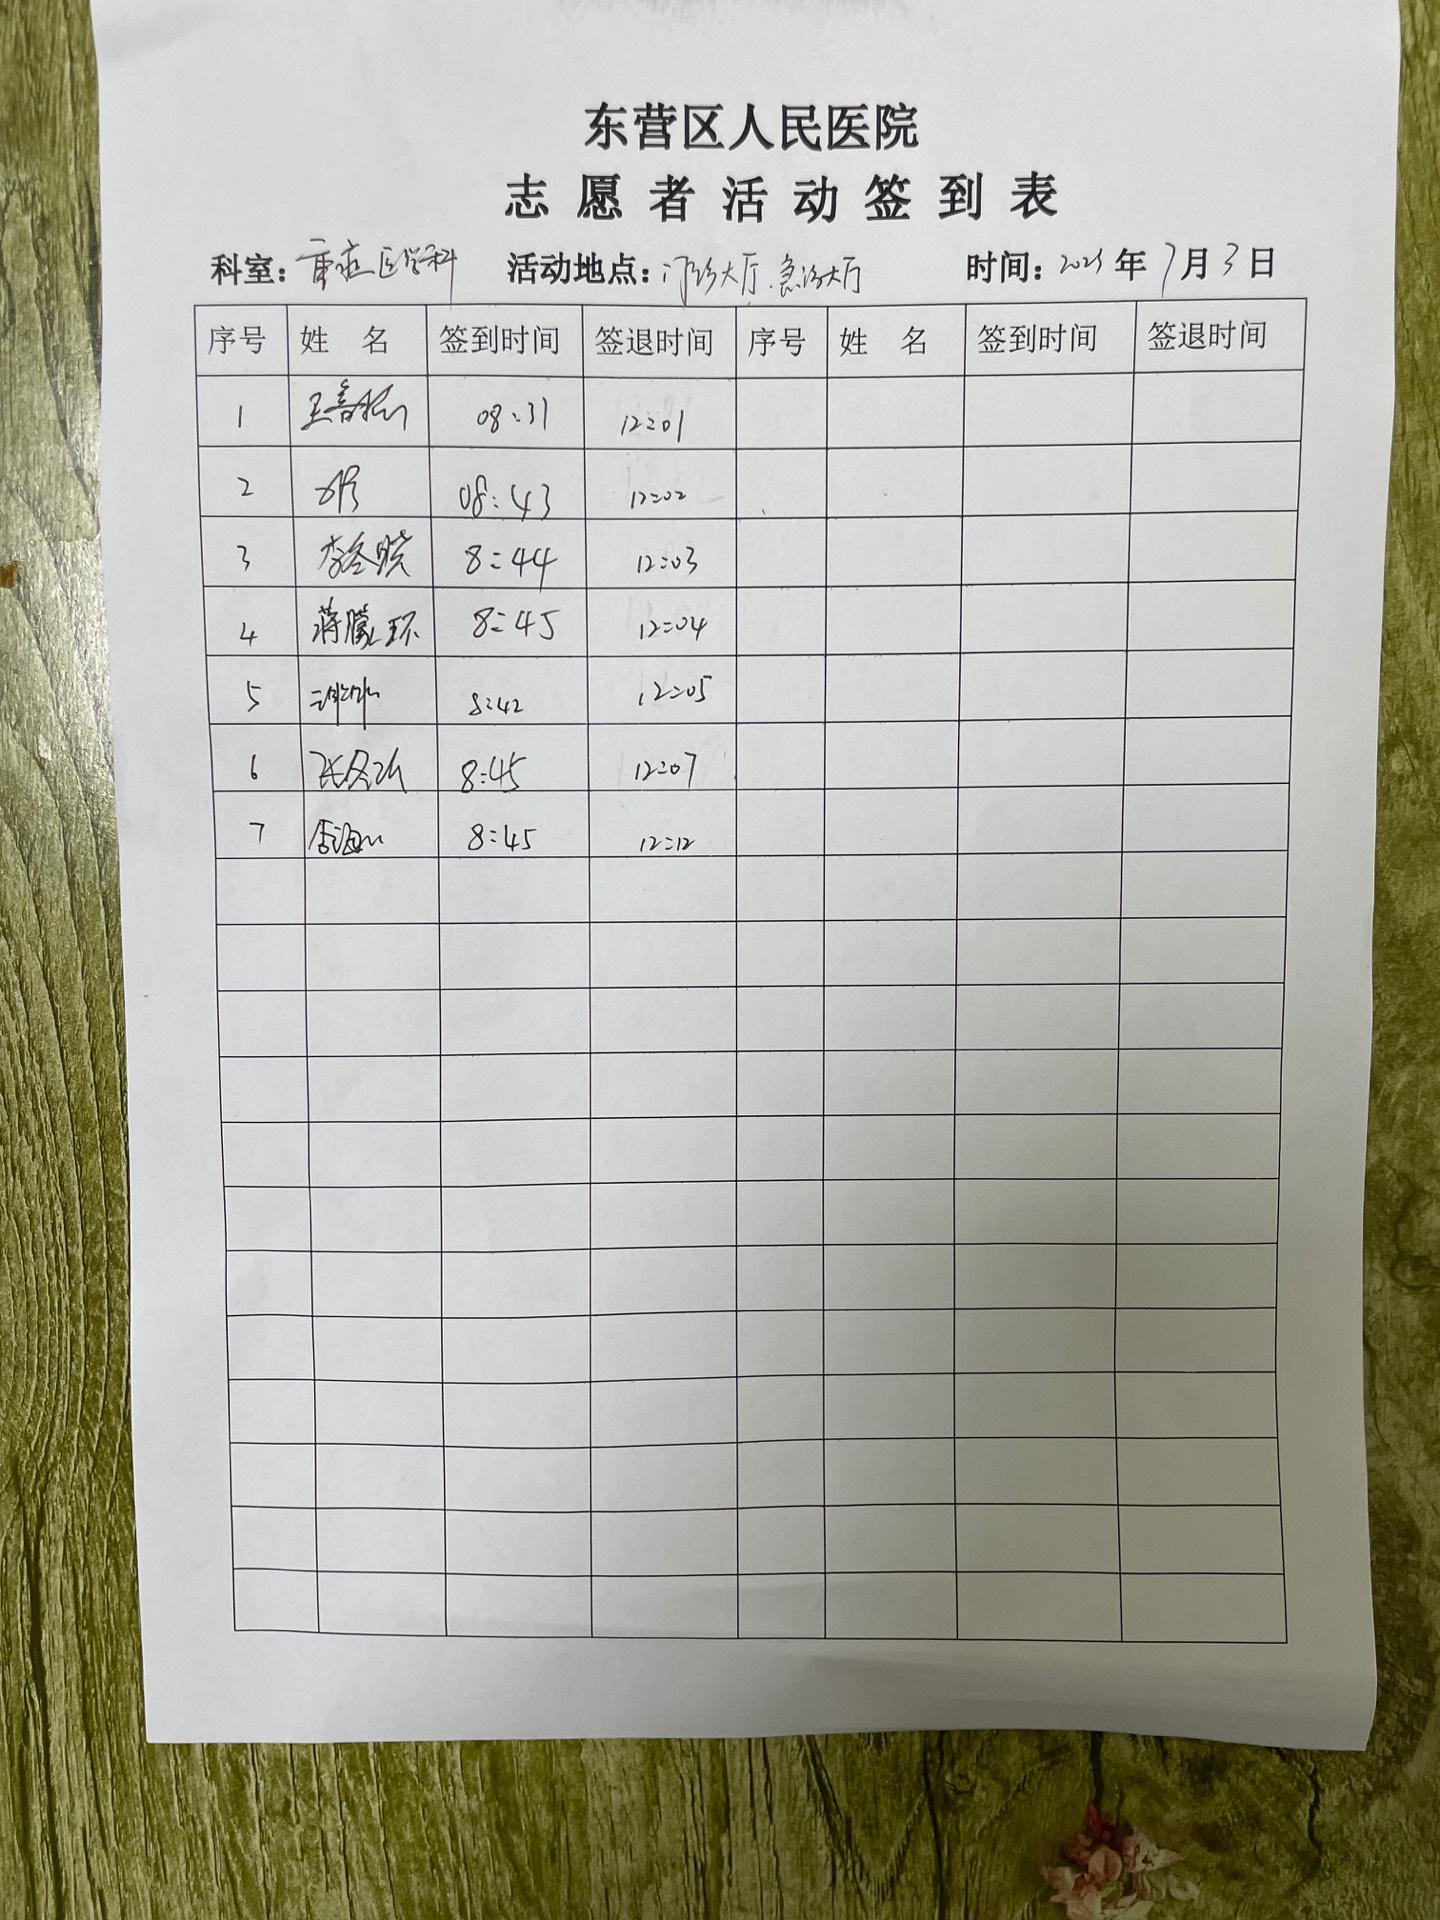 东营区人民医院
志愿者活动签到表
科室：重症医学科 活动地点：门诊大厅、急诊大厅 时间：2025年7月3日
序号 姓 名 签到时间 签退时间 序号 姓 名 签到时间 签退时间
1 08:31 12:01
2 08:43 12:02
3 李冬晓 8:44 12:03
4 蒋朦环 8:45 12:04
5 8:42 12:05
6 8:45 12:07
7 8:45 12:12